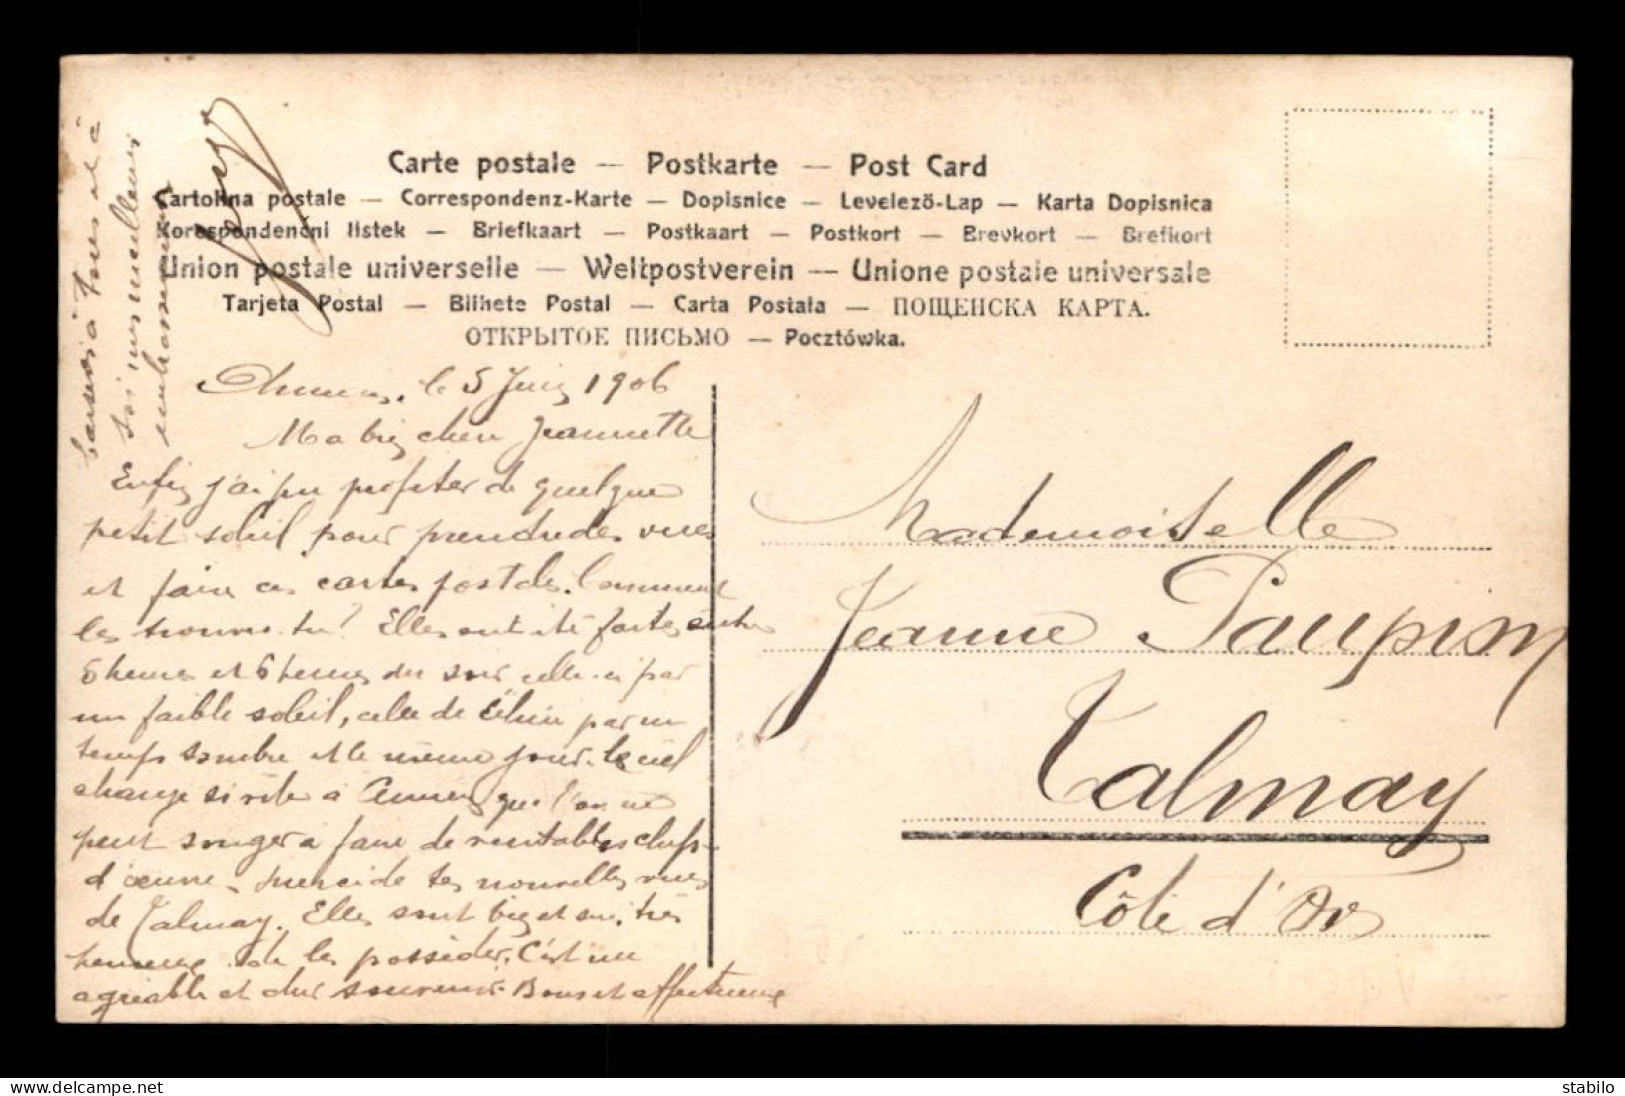 Carte postale — Postkarte — Post Card
Cartolina postale — Correspondenz-Karte — Dopisnice — Levelező-Lap — Karta Dopisnica
Korespondenční listek — Briefkaart — Postkaart — Postkort — Brevkort — Brefkort
Union postale universelle — Weltpostverein — Unione postale universale
Tarjeta Postal — Bilhete Postal — Carta Postala — ПОЩЕНСКА КАРТА.
ОТКРЫТОЕ ПИСЬМО — Pocztówka.
le 5 Juin 1906
Ma bien chère Jeannette
Enfin j'ai pu profiter de quelque
petit soleil pour prendre des vues
et faire ces cartes postales. Comment
les trouves-tu? Elles ont été faites entre
5 heures et 6 heures du soir celle-ci par
un faible soleil, celle de par un
temps sombre et le même jour. Le ciel
change si vite à que l'on ne
peut songer à faire de véritables chefs-
d'œuvre. Merci de tes nouvelles vues
de Talmay. Elles sont bien et suis très
heureuse de les posséder. C'est un
agréable et cher souvenir. Bons et affectueux
baisers à tous et à
toi mes meilleurs
embrassements
Mademoiselle
Jeanne Paupion
Talmay
Côte d'Or
delcampe.net
stabilo